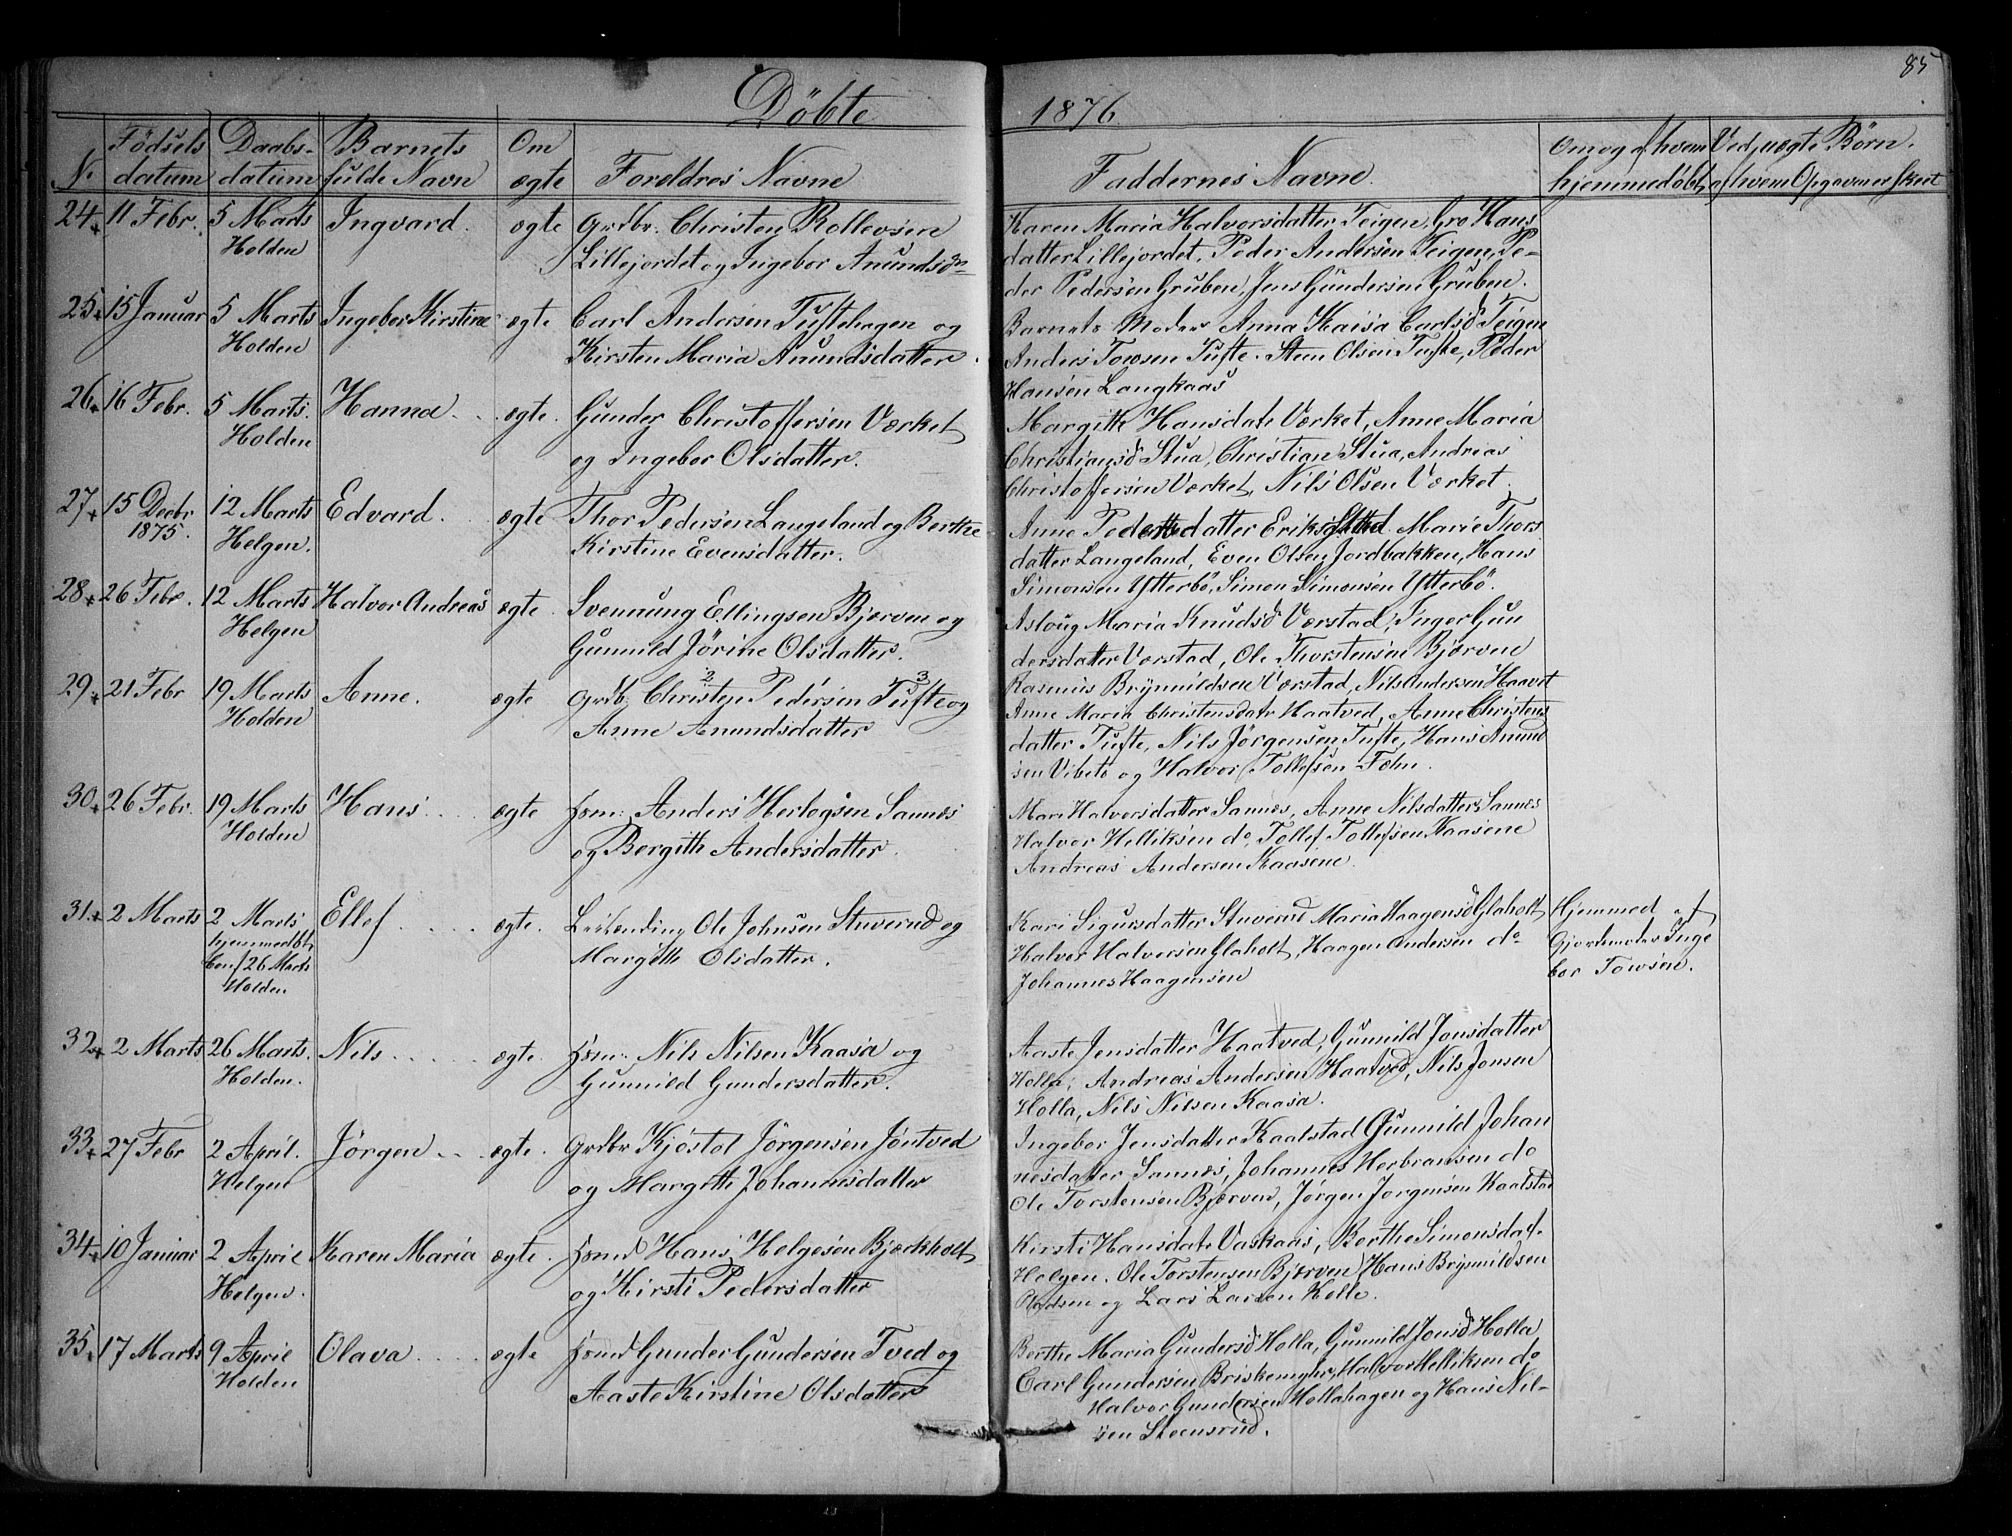 85
Döbte 1876.
N. Fødsels datum Daabs-datum Barnets fulde Navn Om ægte Foreldres Navne Faddernes Navne. Om og af hvem hjemmedøbt Ved uægte Börn. af hvem Opgaven er skeet
24 11 Febr. 5 Marts Ingvard. ægte Grdbr. Christen Rollevsen
Holden Lillejordet og Ingebor Anundsd
Karen Maria Halvorsdatter Teigen, Gro Hans
datter Lillejordet, Peder Andersen Teigen, Pe-
der Pedersen Gruben, Jens Gundersen Gruben.
25 15 Januar 5 Marts Ingebor Kirstine ægte Carl Andersen Tuftehagen og
Holden Kirsten Maria Anundsdatter.
Barnets Moder Anna Kaisa Carlsd Teigen
Anders Towsen Tufte. Steen Olsen Tufte, Peder
Hansen Langkaas
26 16 Febr. 5 Marts. Hanna ægte. Gunder Christoffersen Værket
Holden og Ingebor Olsdatter.
Margith Hansdatr Værket, Anne Maria
Christiansd Stua, Christian Stua, Andreas
Christoffersen Værket, Nils Olsen Værket.
27 15 Decbr 12 Marts Edvard. ægte Thor Pedersen Langeland og Berthe
1875. Helgen. Kirstine Evensdatter.
Anne datter Marie Thors
datter Langeland, Even Olsen Jordbakken, Hans
Simonsen Ytterbö, Simon Simonsen Ytterbö.
28 26 Febr. 12 Marts Halvor Andreas ægte. Svennung Ellingsen Bjerven og
Helgen Gunnild Jörine Olsdatter.
Asloug Maria Knudsd Værstad, Inger Gun
dersdatter Værstad, Ole Thorstensen Bjærven
Rasmus Brynnildsen Værstad, Nils Andersen Haavet
29 21 Febr 19 Marts Anne. ægte Grdb. Christen 2 Pedersen Tufte 3 og
Holden Anne Anundsdatter
Anne Maria Christensdatr Haatved, Anne Christens
datter Tufte, Nils Jörgensen Tufte, Hans Anund
sen Vibeto og Halvor Tollefsen Fæhn.
30 26 Febr. 19 Marts Hans ægte Hsm: Anders Herlogsen Sannes
Holden og Bergith Andersdatter.
Mari Halversdatter Sannes, Anne Nilsdatter Sannes
Halvor Helliksen do, Tollef Tollefsen Kaasene
Andreas Andersen Kaasene.
31 2 Marts 2 Marts Ellef ægte. Leilænding Ole Johnsen Stuverud og
hjemmedöbt, Conf 26 Marts Holden Margith Olsdatter.
Kari Sigursdatter Stuverud Maria Haagensd Glaholt
Halvor Halversen Glaholt, Haagen Andersen do
Johannes Haagensen
Hjemmed af
Gjordemoder Inge
bor Towsen.
32 2 Marts 26 Marts. Nils ægte. Hsm: Nils Nilsen Kaasa og
Holden. Gunnild Gundersdatter.
Aaste Jensdatter Haatved, Gunnild Jonsdatter
Holla, Andreas Andersen Haatved, Nils Jonsen
Holla, Nils Nilsen Kaasa.
33 27 Febr 2 April. Jörgen ægte. Grdbr Kjöstol Jörgensen Jöntved
Helgen og Margith Johannisdatter
Ingebor Jensdatter Kaalstad Gunnild Johan
nesdatter Sannes, Johannes Herbransen do
Ole Torstensen Bjærven, Jörgen Jorgensen Kaalstad
34 10 Januar 2 April Karen Maria ægte. Hsmd Hans Helgesen Bjærkholt
Helgen. og Kirsti Pedersdatter
Kirsti Hansdatr Vaskaas, Berthe Simonsdat.
Helgen. Ole Torstensen Bjerven, Hans Brynnildsen
og Lars Larsen Kolle.
35 17 Marts 9 April Olava ægte Hsmd Gunder Gundersen Tved og
Holden Aaste Kirstine Olsdatter
Berthe Maria Gundersd Holla, Gunnild Jonsd Holla
Carl Gundersen Halvor Helliksen do
Halvor Gundersen Hollahagen og Hans Nil-
sen Steensrud.